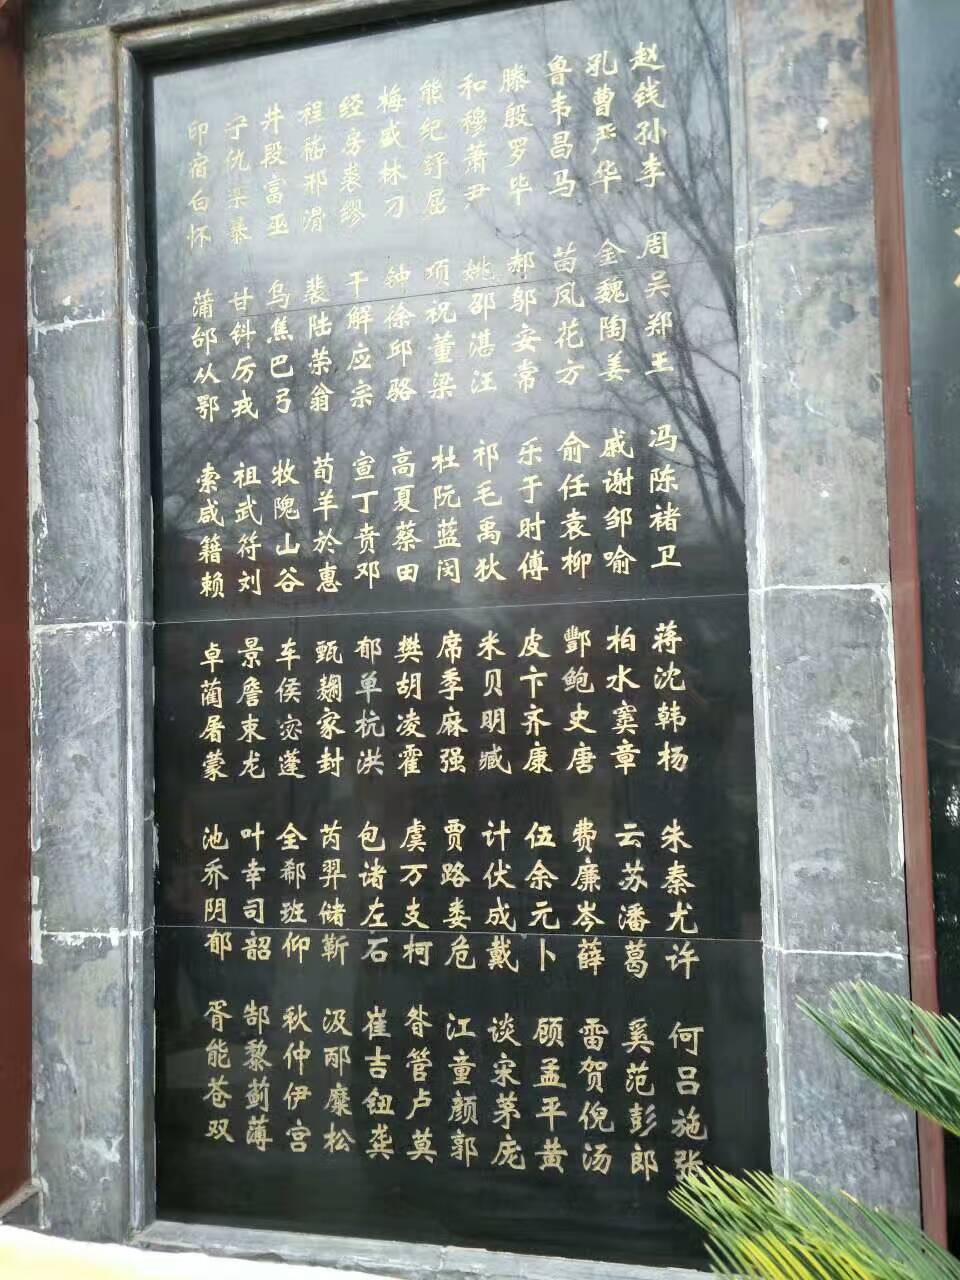 赵钱孙李 周吴郑王 冯陈褚卫 蒋沈韩杨 朱秦尤许 何吕施张
孔曹严华 金魏陶姜 戚谢邹喻 柏水窦章 云苏潘葛 奚范彭郎
鲁韦昌马 苗凤花方 俞任袁柳 酆鲍史唐 费廉岑薛 雷贺倪汤
滕殷罗毕 郝邬安常 乐于时傅 皮卞齐康 伍余元卜 顾孟平黄
和穆萧尹 姚邵湛汪 祁毛禹狄 米贝明臧 计伏成戴 谈宋茅庞
熊纪舒屈 项祝董梁 杜阮蓝闵 席季麻强 贾路娄危 江童颜郭
梅盛林刁 钟徐邱骆 高夏蔡田 樊胡凌霍 虞万支柯 昝管卢莫
经房裘缪 干解应宗 宣丁贲邓 郁单杭洪 包诸左石 崔吉钮龚
程嵇邢滑 裴陆荣翁 荀羊於惠 甄麹家封 芮羿储靳 汲邴糜松
井段富巫 乌焦巴弓 牧隗山谷 车侯宓蓬 全郗班仰 秋仲伊宫
宁仇栾暴 甘钭厉戎 祖武符刘 景詹束龙 叶幸司韶 郜黎蓟薄
印宿白怀 蒲邰从鄂 索咸籍赖 卓蔺屠蒙 池乔阴郁 胥能苍双